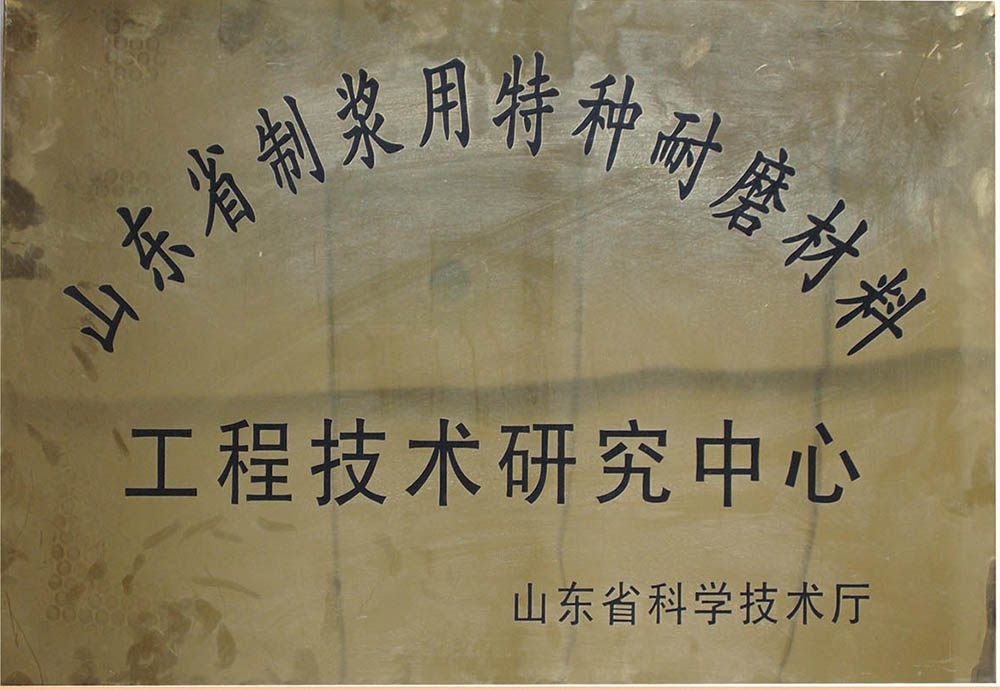 山东省制浆用特种耐磨材料
工程技术研究中心
山东省科学技术厅